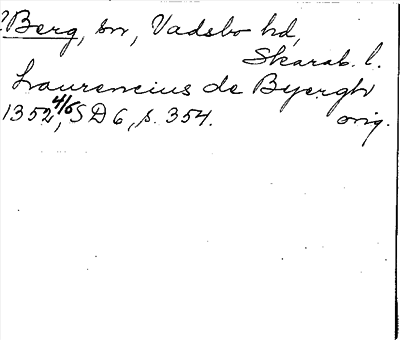 ? Berg, sn, Vadsbo hd,
Skarab. l.
Laurencius de Byergh
1352 4/6, SD 6, s. 354. orig.